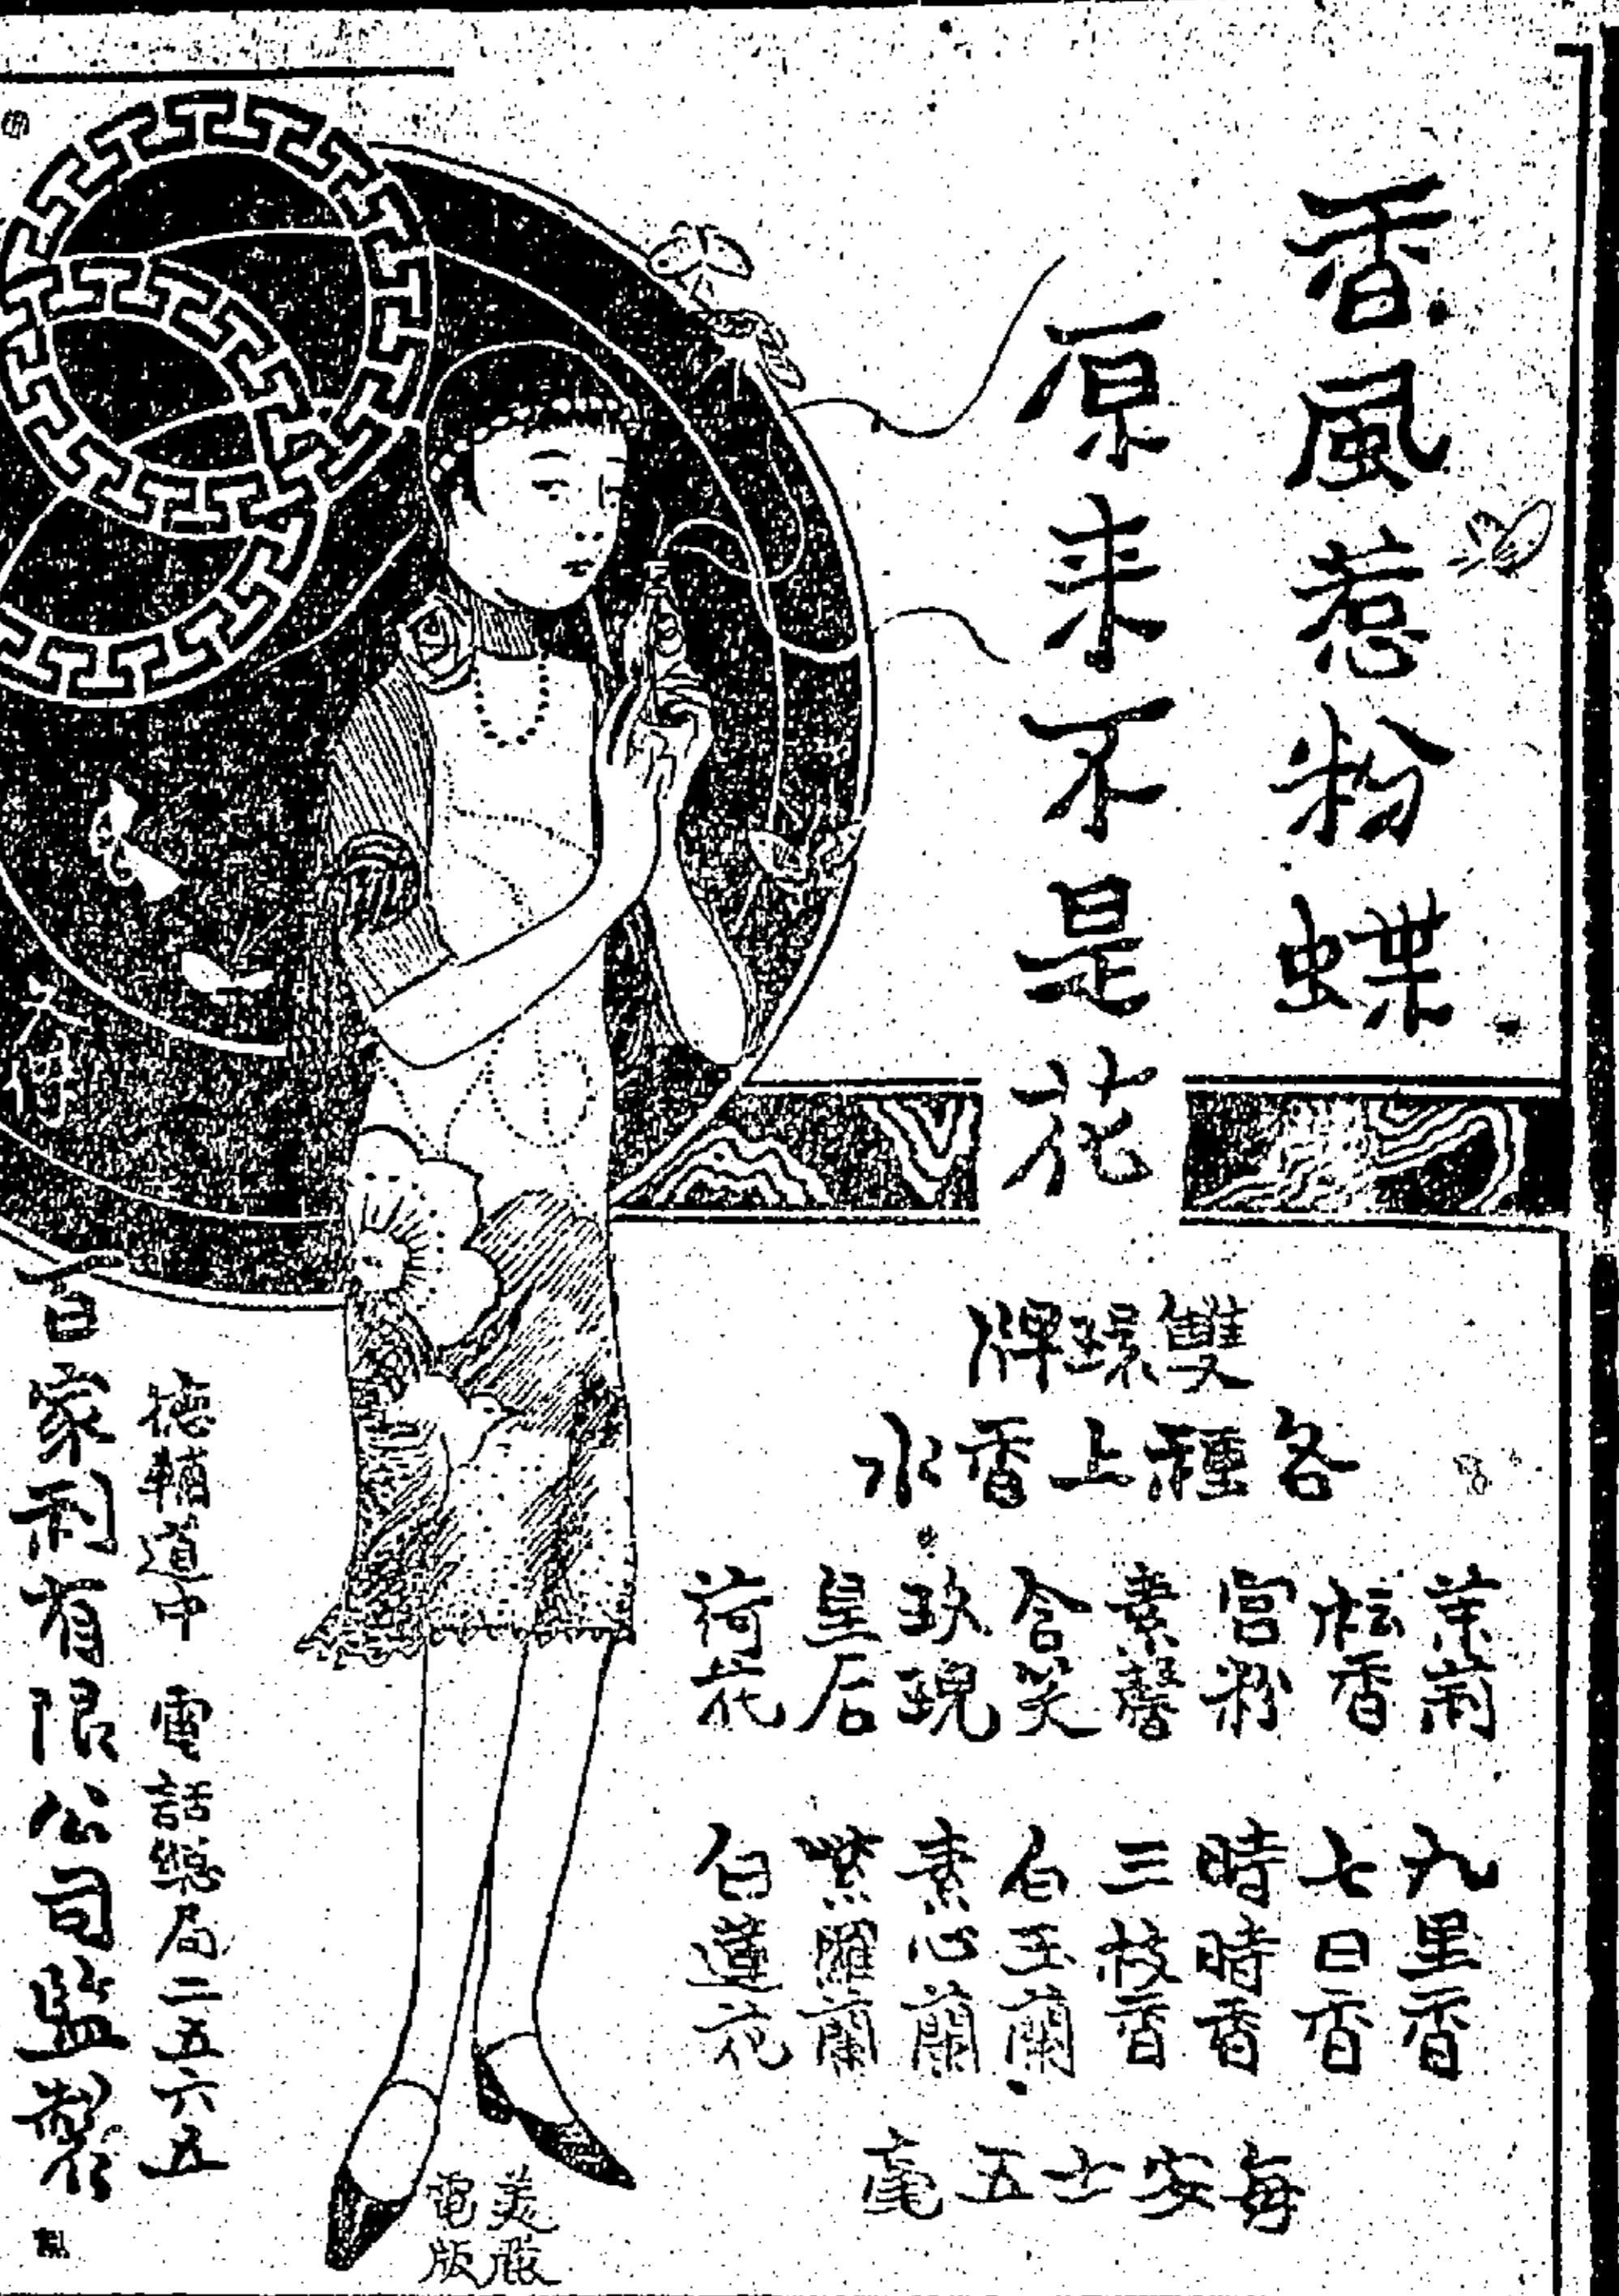 香風惹粉蝶
原来不是花
雙環牌
各種上香水
茉莉
檀香
宮粉
素馨
含笑
玫瑰
皇后
荷花
九里香
七日香
時時香
三枝香
白玉蘭
素心蘭
紫羅蘭
白蓮花
每安士五毫
德輔道中 電話總局二五六五
百家利有限公司監製
電版